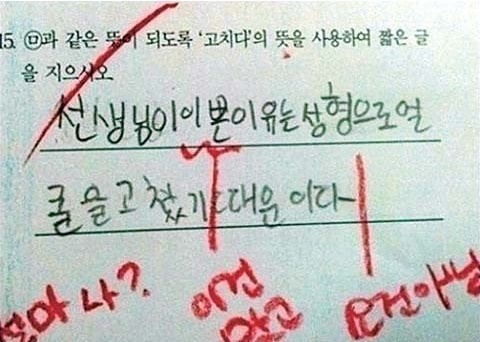 15. ㉤과 같은 뜻이 되도록 '고치다'의 뜻을 사용하여 짧은 글
을 지으시오
선생님이이쁜이유는 성형으로얼
굴을고쳤기때문이다
나?
이건
맞고
요건아님